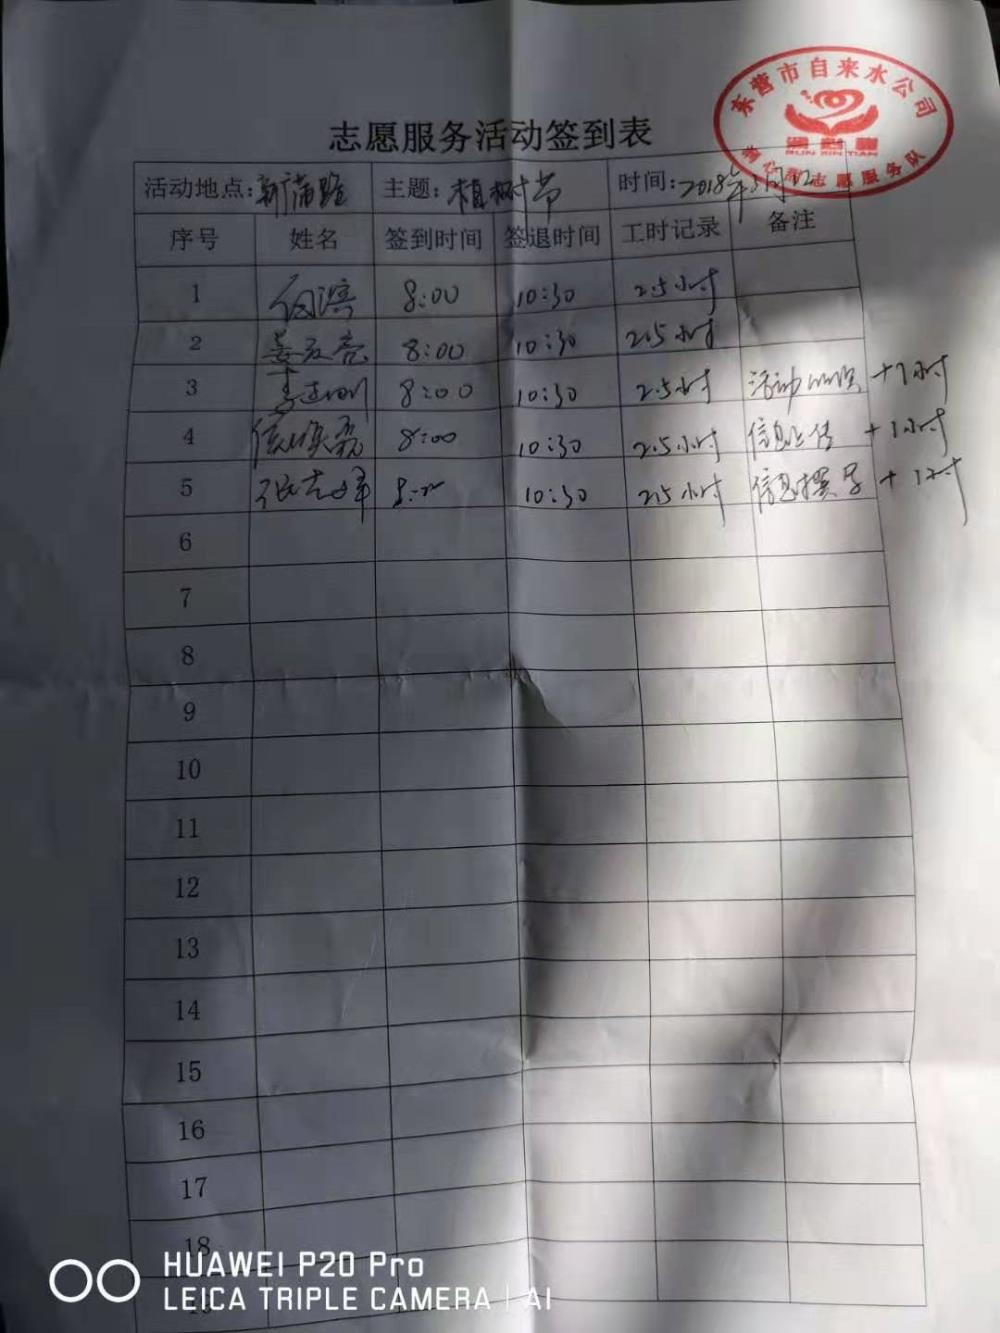 东营市自来水公司
润心田
RUN XIN TIAN
润心田志愿服务队
志愿服务活动签到表
活动地点:新蒲路 主题:植树节 时间:2018年3月12
序号 姓名 签到时间 签退时间 工时记录 备注
1 8:00 10:30 2.5小时
2 8:00 10:30 2.5小时
3 8:00 10:30 2.5小时 活动 +1小时
4 8:00 10:30 2.5小时 信息上传 +1小时
5 10:30 2.5小时 信息撰写 +1小时
6
7
8
9
10
11
12
13
14
15
16
17
18
19
HUAWEI P20 Pro
LEICA TRIPLE CAMERA | AI